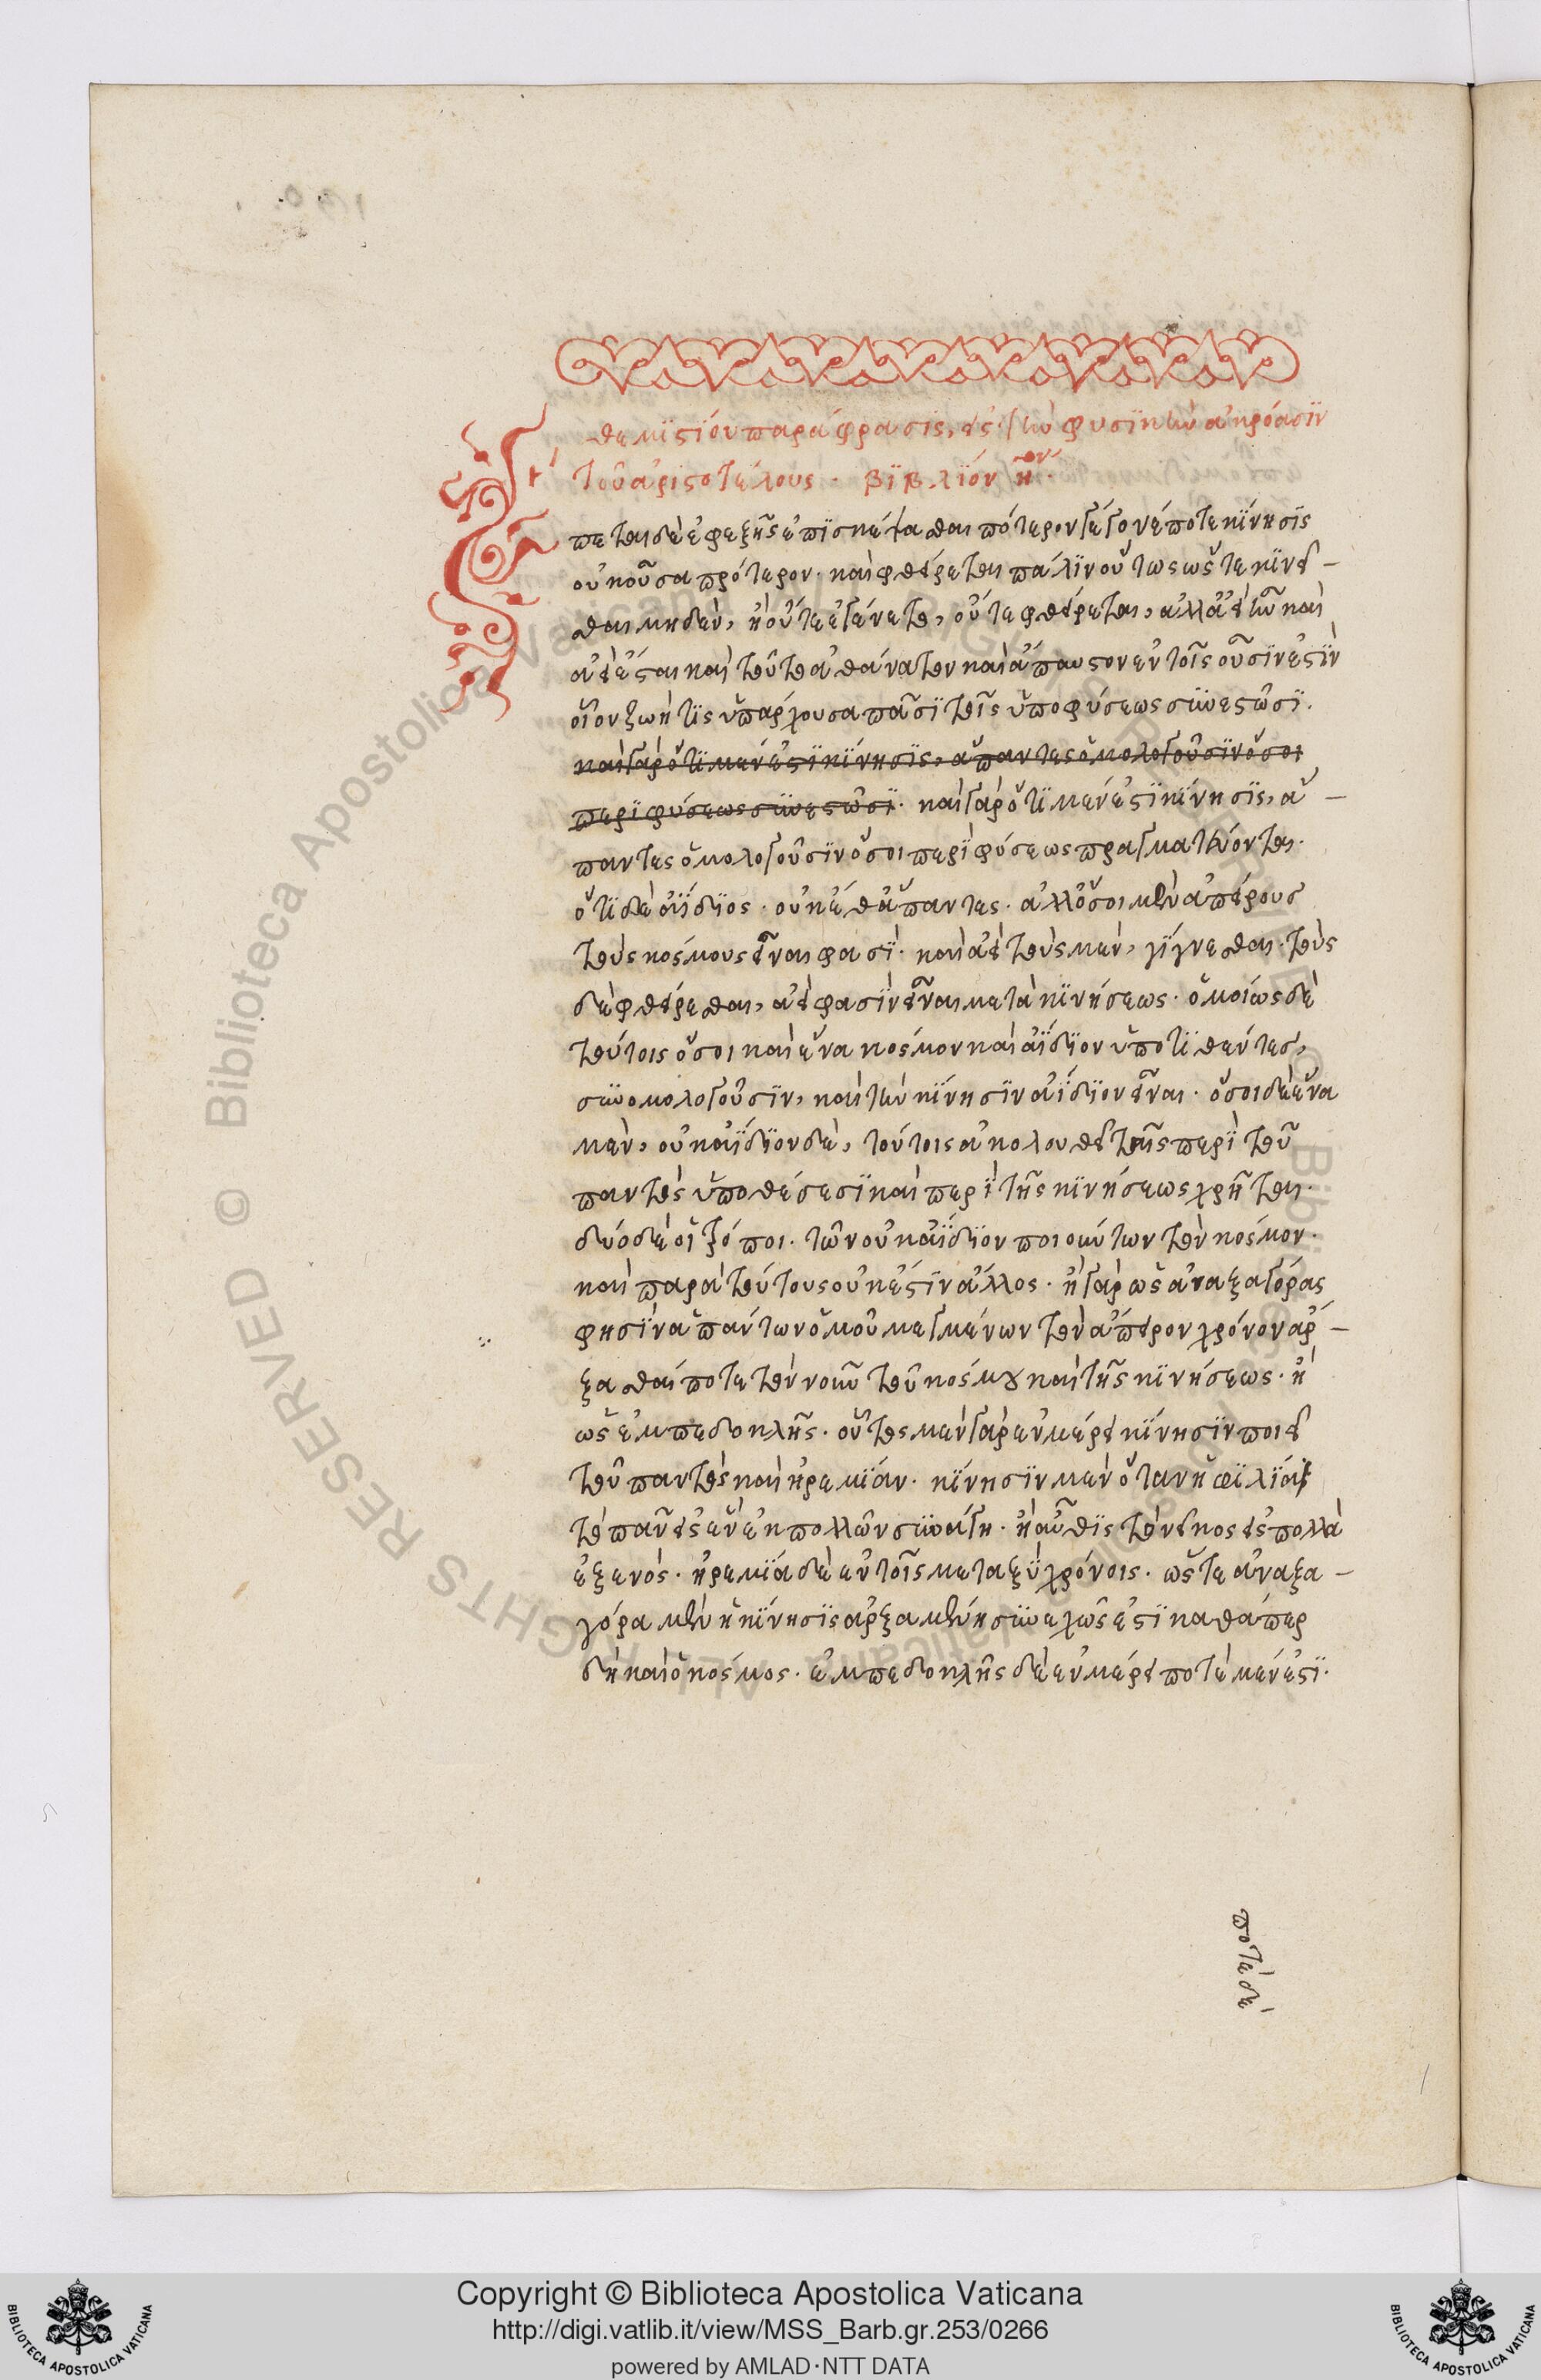 θεμιστίου παράφρασις, εἰς τὴν φυσικὴν ἀκρόασιν
τοῦ ἀριστοτέλους · βιβλίον η̅ον ·
Ἕπεται δὲ ἐφεξῆς ἐπισκέψασθαι πότερον γέγονέ ποτε κίνησις
οὐκ οὖσα πρότερον · καὶ φθείρεται πάλιν οὕτως ὥστε κινεῖ-
σθαι μηδέν, ἢ οὔτε ἐγένετο, οὔτε φθείρεται, ἀλλ' ἀεὶ ἦν καὶ
ἀεὶ ἔσται καὶ τοῦτο ἀθάνατον καὶ ἄπαυστον ἐν τοῖς οὖσιν ἐστὶν
οἷον ζωή τις ὑπάρχουσα πᾶσι τοῖς ὑπὸ φύσεως συνεστῶσι.
καὶ γὰρ ὅτι μὲν ἔστι κίνησις, ἅπαντες ὁμολογοῦσιν ὅσοι
περὶ φύσεως συνεστῶσι · καὶ γὰρ ὅτι μὲν ἔστι κίνησις, ἅ-
παντες ὁμολογοῦσιν ὅσοι περὶ φύσεως πραγματεύονται.
ὅτι δὲ ἀΐδιος · οὐκέθ' ἅπαντες · ἀλλ' ὅσοι μὲν ἀπείρους
τοὺς κόσμους εἶναι φασί · καὶ ἀεὶ τοὺς μὲν, γίγνεσθαι · τοὺς
δὲ φθείρεσθαι, ἀεὶ φασὶν εἶναι μετὰ κινήσεως · ὁμοίως δὲ
τούτοις ὅσοι καὶ ἕνα κόσμον καὶ ἀΐδιον ὑποτιθέντες,
συνομολογοῦσιν, καὶ τὴν κίνησιν ἀΐδιον εἶναι · ὅσοι δὲ ἕνα
μὲν, οὐκ ἀΐδιον δὲ, τούτοις ἀκολουθεῖ ταῖς περὶ τοῦ
παντὸς ὑποθέσεσι καὶ περὶ τῆς κινήσεως χρῆται.
δύο δὲ οἱ τρόποι · τῶν οὐκ ἀΐδιον ποιούντων τὸν κόσμον ·
καὶ παρὰ τούτους οὐκ ἔστιν ἄλλος · ἢ γὰρ ὡς ἀναξαγόρας
φησὶν ἁπάντων ὁμοῦ μεγμένων τὸν ἄπειρον χρόνον ἄρ-
ξασθαί ποτε τὸν νοῦν τοῦ κόσμου καὶ τῆς κινήσεως · ἢ
ὡς ἐμπεδοκλῆς · οὗτος μὲν γὰρ ἐν μέρει κίνησιν ποιεῖ
τοῦ παντὸς καὶ ἠρεμίαν · κίνησιν μὲν ὅταν ἡ φιλία
τὸ πᾶν εἰς ἓν ἐκ πολλῶν συνάγῃ · ἢ αὖθις τὸ νεῖκος εἰς πολλὰ
ἐξ ἑνός · ἠρεμία δὲ ἐν τοῖς μεταξὺ χρόνοις · ὥστε ἀναξα-
γόρα μὲν ἡ κίνησις ἀρξαμένη συνεχῶς ἐστι καθάπερ
δὴ καὶ ὁ κόσμος · ἐμπεδοκλῆς δὲ ἐν μέρει ποτὲ μὲν ἐστί ·
ποτὲ δὲ
Copyright © Biblioteca Apostolica Vaticana
http://digi.vatlib.it/view/MSS_Barb.gr.253/0266
powered by AMLAD·NTT DATA